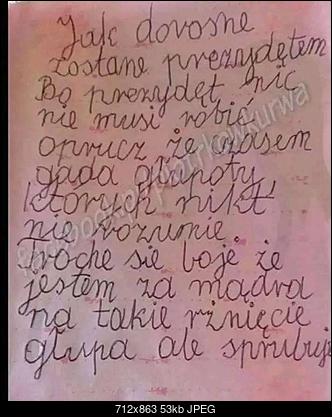 Jak dorosne
zostane prezydętem
Bo prezydęt nic
nie musi robić
oprucz że czasem
gada głupoty
których nikt
nie rozumie
troche sie boje że
jestem za mądra
na takie rżnięcie
głupa ale sprubuje
712x863 53kb JPEG